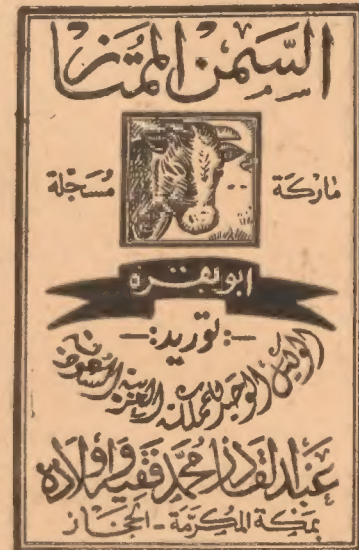 السمن الممتاز
ماركة مسجلة
ابو بقره
توريد:
الوكيل الوحيد للمملكة العربية السعودية
عبد القادر محمد فقيه وأولاده
بمكة المكرمة - الحجاز